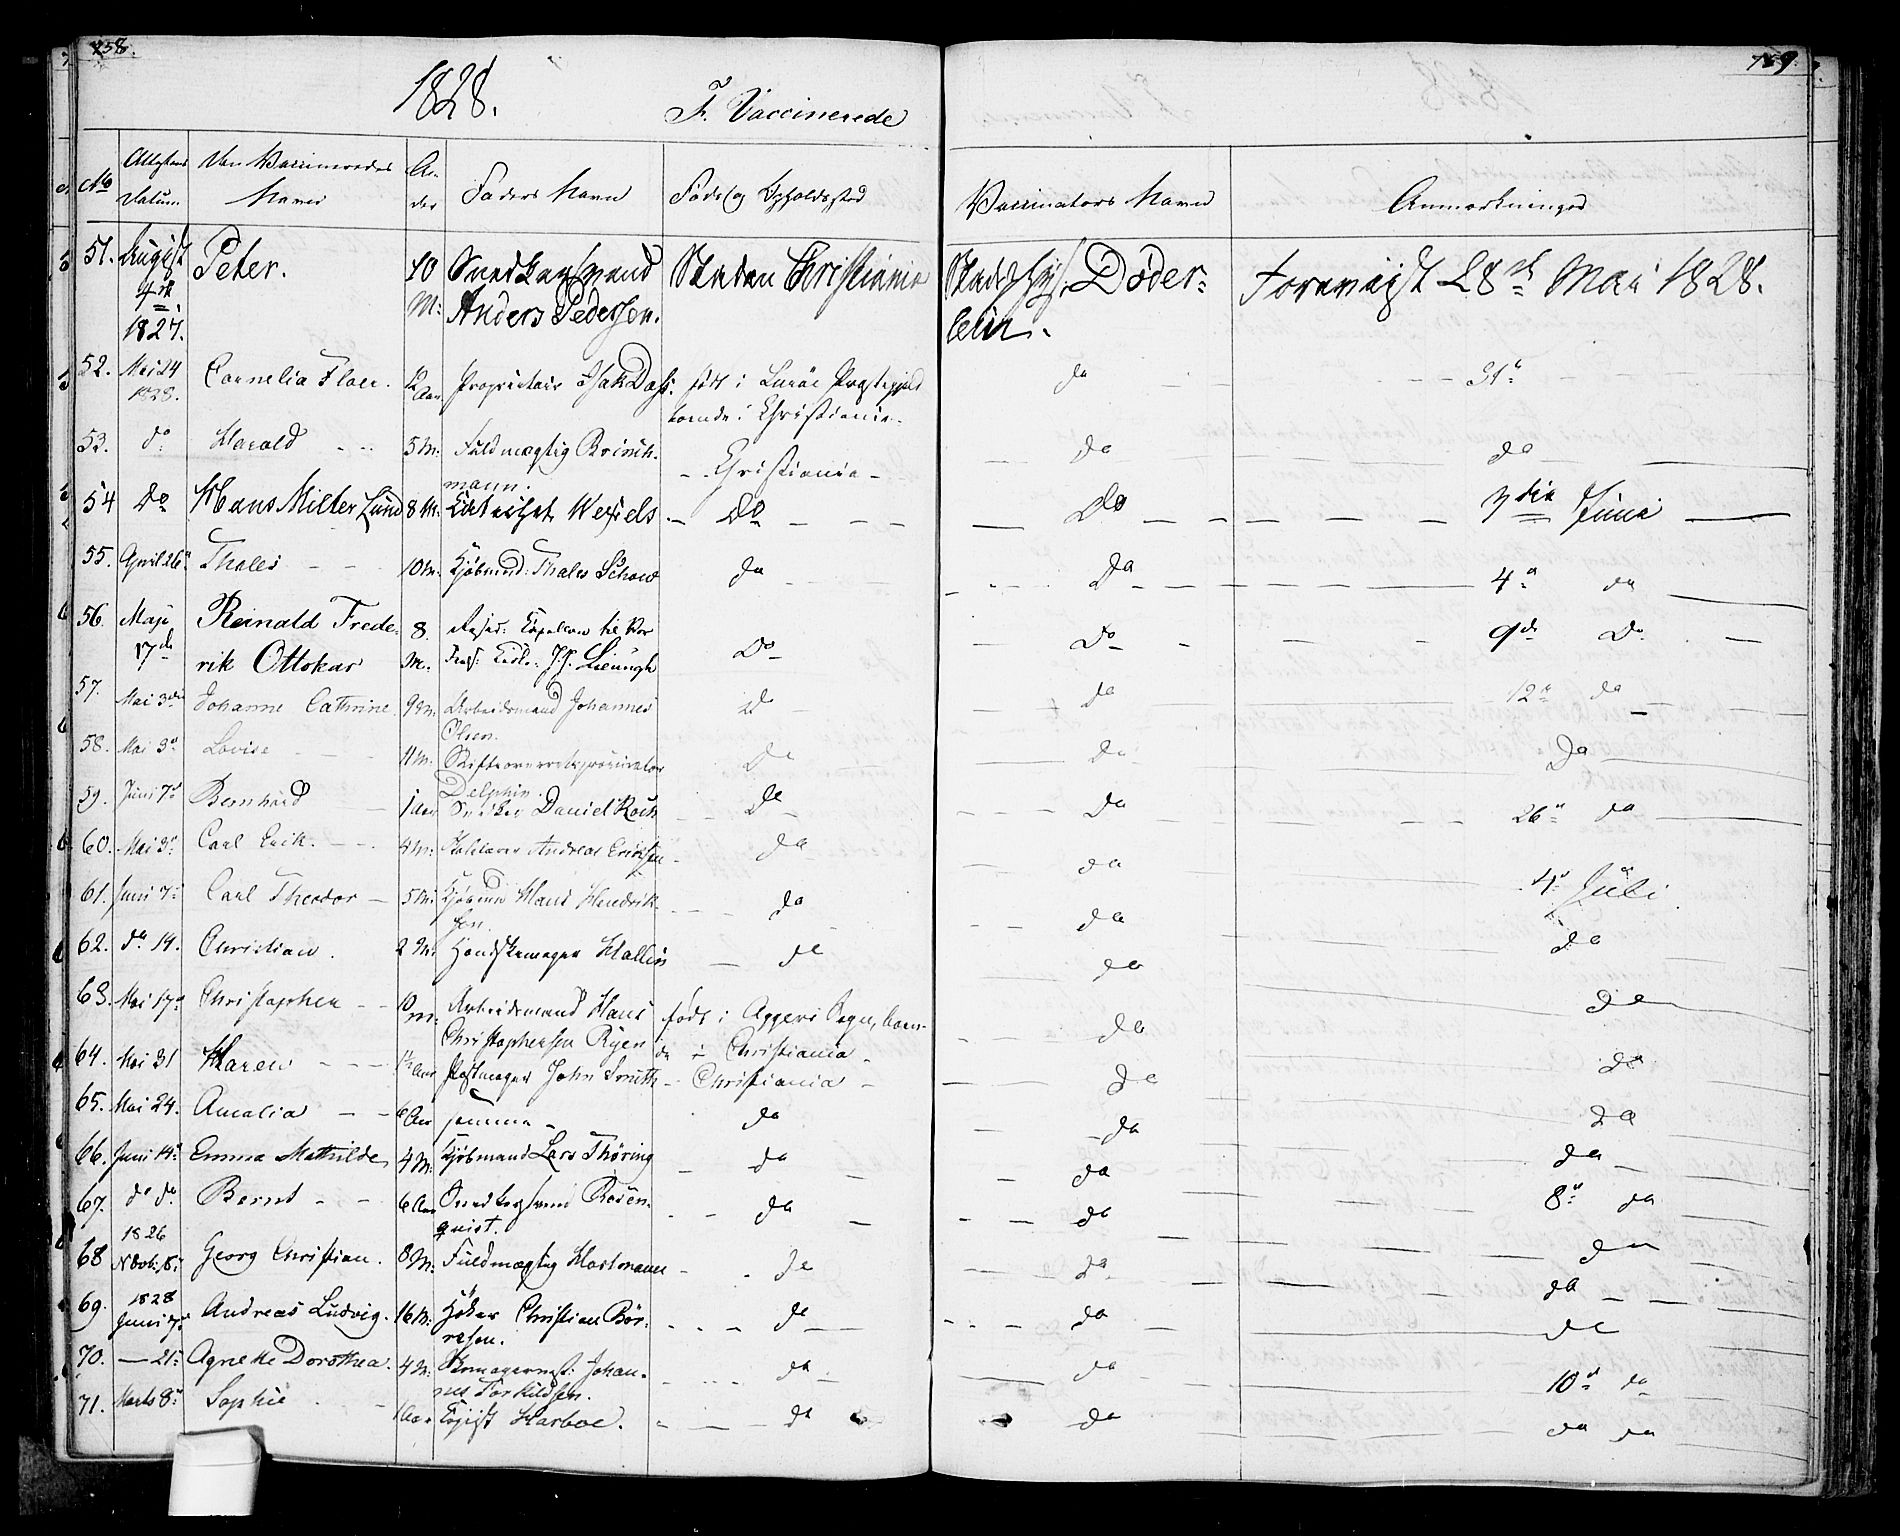 158.
159.
1828.
F. Vaccinerede
No Attestens Datum Den Vaccineredes Navn Al- der Faders Navn Føde og Opholdssted Vaccinators Navn Anmærkninger
51. August 4de 1827. Peter. 10 M: Snedkersvend Anders Pedersen. Staden Christiania Stadsphys. Døder- lein. Foreviist 28de Mai 1828.
52. Mai 24 1828. Cornelia Floer. 12 Aar Proprietair Isak Dass. født i Lurøe Præstegjeld boende i Christiania. do 31d
53. do Harald 5 M: Fuldmægtig Brinch- mann. Christiania do do
54 Do Hans Milter Lund 8 M. Catechet Wexels Do Do 7die Juni
55. April 26d Thales 10 M. Kjøbmd: Thales Schow do Do 4d do
56. Maji 17de Reinald Frede- rik Ottokar 8 M. Resid: Capellan til Vor Frels: J. J. Lieungh Do Do 9de Do
57. Mai 3die Johanne Cathrine 9 M. Arbeidsmand Johannes Olsen. Do do 12d do
58. Mai 3d Lovise 11 M: Stiftsoverretsprocurator Delphin. Do Do Do
59. Juni 7d Bernhard 1 Aar Snedker Daniel Koch Do do 26d do
60. Mai 3d Carl Erik. 4 M: Andreas Eriksen do do
61. Juni 7d Carl Theodor 5 M: Kjøbmd Hans Hendrik- sen. do do 4d Juli
62. do 14. Christian. 2 M: Handskemager Hallin do do do
63. Mai 17d Christopher 10 M. Arbeidsmand Hans Christophersen Ryen født i Aggers Sogn, boen- de i Christiania do do
64. Mai 31 Karen 1½ Aar John Smith Christiania do do
65. Mai 24. Amalia 6 Aar samme do do do
66. Juni 14d Emma Mathilde 4 M: Kjøbmand Lars Thøring do do do
67. do do Bernt 6 Aar Snedkersvend Rosen- quist. do do 8d do
68 1826 Novb. 8d Georg Christian. 8 M: Fuldmægtig Hartmann do do do
69. 1828 Juni 7d Andreas Ludvig. 16 M: Høker Christian Bør- resen. do do do
70. — 21d Agnethe Dorothea. 4 M. Skomagermst: Johan- nes Torkildsen. do do do
71. Marts 8d Sophie 1 Aar Copist Harboe. do do 10d do
do do